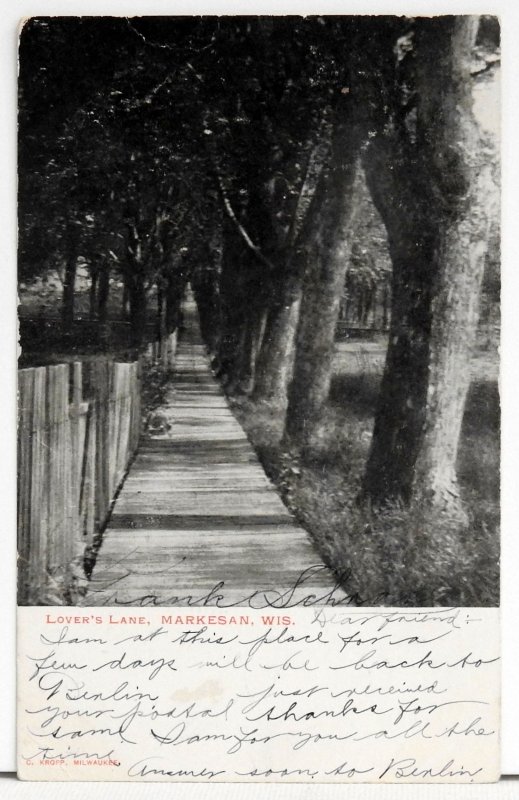 Frank
LOVER'S LANE, MARKESAN, WIS.
Dear friend:-
I am at this place for a
few days will be back to
Berlin just received
your postal thanks for
same I am for you all the
time
C. KROPP, MILWAUKEE.
Answer soon to Berlin.